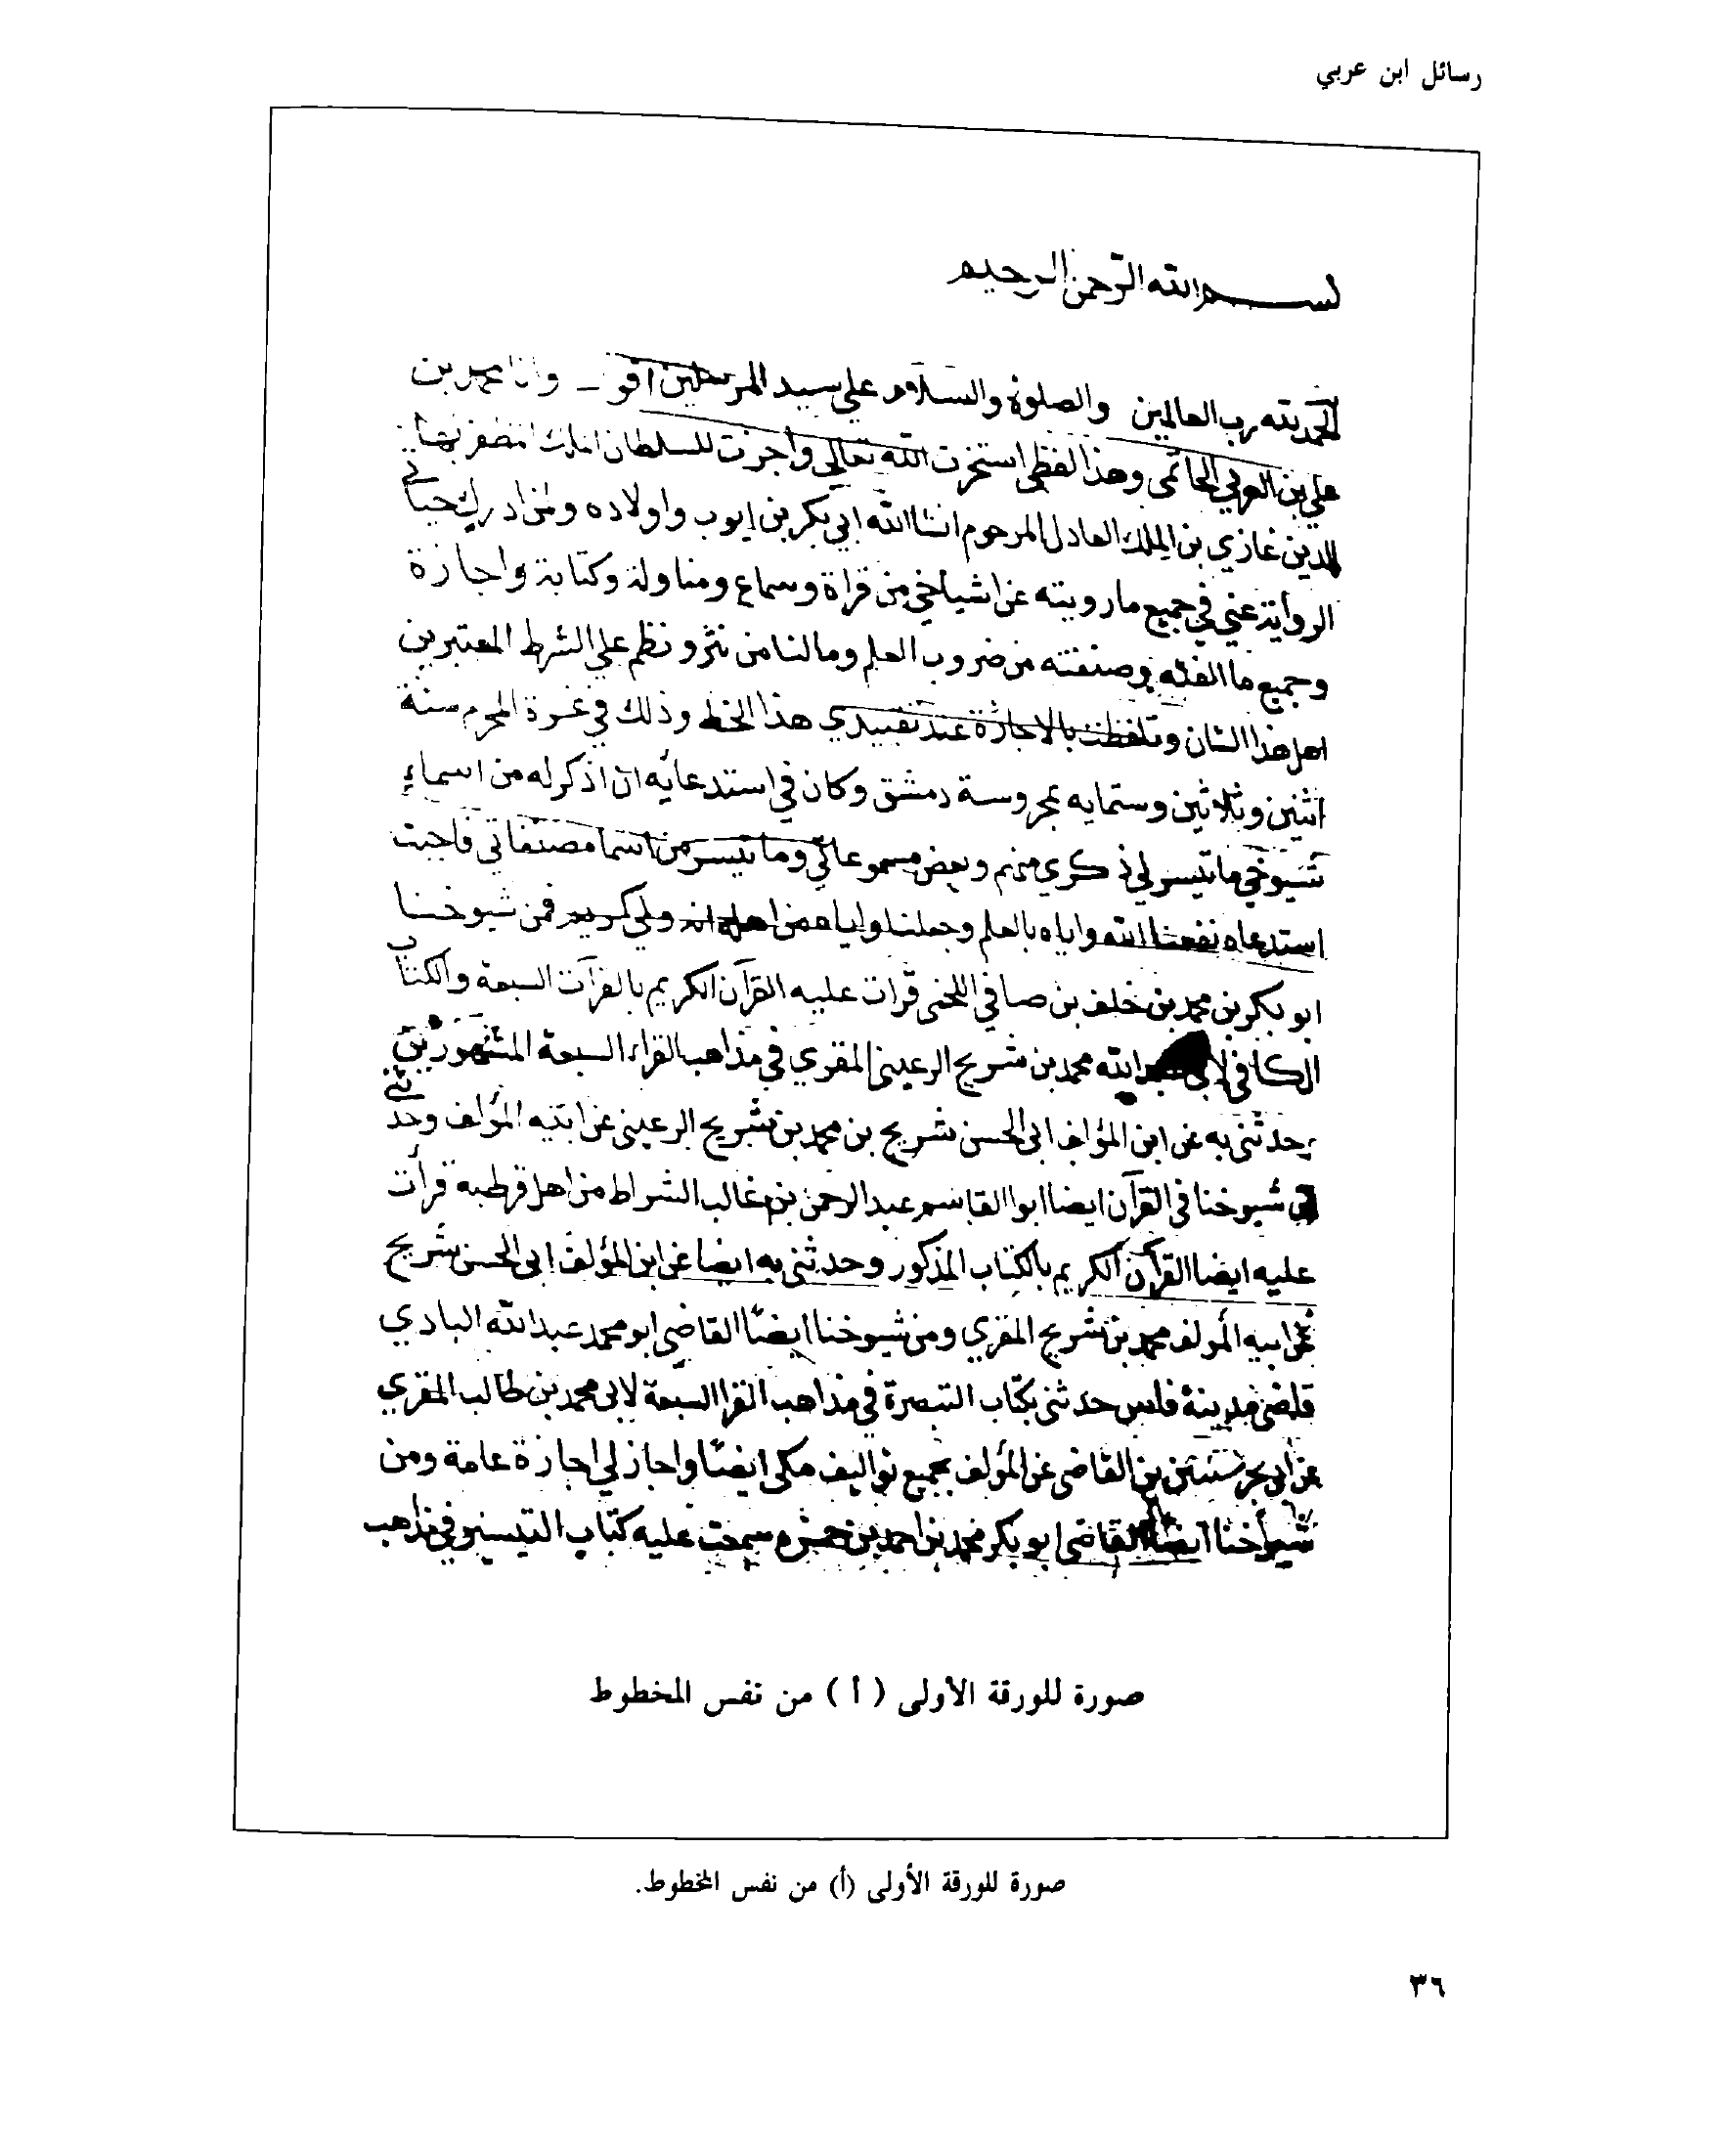 رسائل ابن عربي
بسم الله الرحمن الرحيم
الحمد لله رب العالمين والصلوة والسلام على سيد المرسلين اقول وانا محمد بن
علي بن العربي الحاتمي وهذا لفظي استخرت الله تعالى واجزت للسلطان الملك المظفر بهاء
الدين غازي بن الملك العادل المرحوم انشا الله ابي بكر بن ايوب واولاده ولمن ادرك حياتي
الرواية عني في جميع ما رويته عن اشياخي من قراة وسماع ومناولة وكتابة واجازة
وجميع ما الفته وصنفته من ضروب العلم وما لنا من نثر ونظم علي الشرط المعتبر بين
اهل هذا الشان وتلفظت بالاجازة عند تقييدي هذا الخط وذلك في غرة المحرم سنة
اثنين وثلاثين وستمايه بمحروسة دمشق وكان في استدعائه ان اذكر له من اسماء
شيوخي ما تيسر لي ذكري منهم وبعض مسموعاتي وما تيسر من اسما مصنفاتي فاجبت
استدعاه نفعنا الله واياه بالعلم وجعلنا واياه من اهله انه ولي كريم فمن شيوخنا
ابو بكر بن محمد بن خلف بن صافي اللخمي قرات عليه القرآن الكريم بالقرآت السبعة والكتاب
الكافي لابي الله محمد بن شريح الرعيني المقري في مذاهب القراء السبعة المشهورين
وحدثني به عن ابن المؤلف ابى الحسن شريح بن محمد بن شريح الرعيني عن ابيه المؤلف وحدثني
شيوخنا في القرآن ايضا ابو القاسم عبد الرحمن بن غالب الشراط من اهل قرطبة قرأت
عليه ايضا القرآن الكريم بالكتاب المذكور وحدثني به ايضا عن ابن المؤلف ابى الحسن شريح
عن ابيه المؤلف محمد بن شريح المقري ومن شيوخنا ايضًا القاضي ابو محمد عبد الله البادي
قاضي مدينة فاس حدثني بكتاب التبصرة في مذاهب القرا السبعة لابي محمد بن طالب المقري
عن ابي بحر بن القاضي عن المؤلف بجميع تواليف مكي ايضًا واجاز لي اجازة عامة ومن
شيوخنا ايضا القاضي ابو بكر محمد بن احمد بن حمزه سمعت عليه كتاب التيسير في مذاهب
صورة للورقة الأولى ( أ ) من نفس المخطوط
صورة للورقة الأولى (أ) من نفس المخطوط.
٣٦